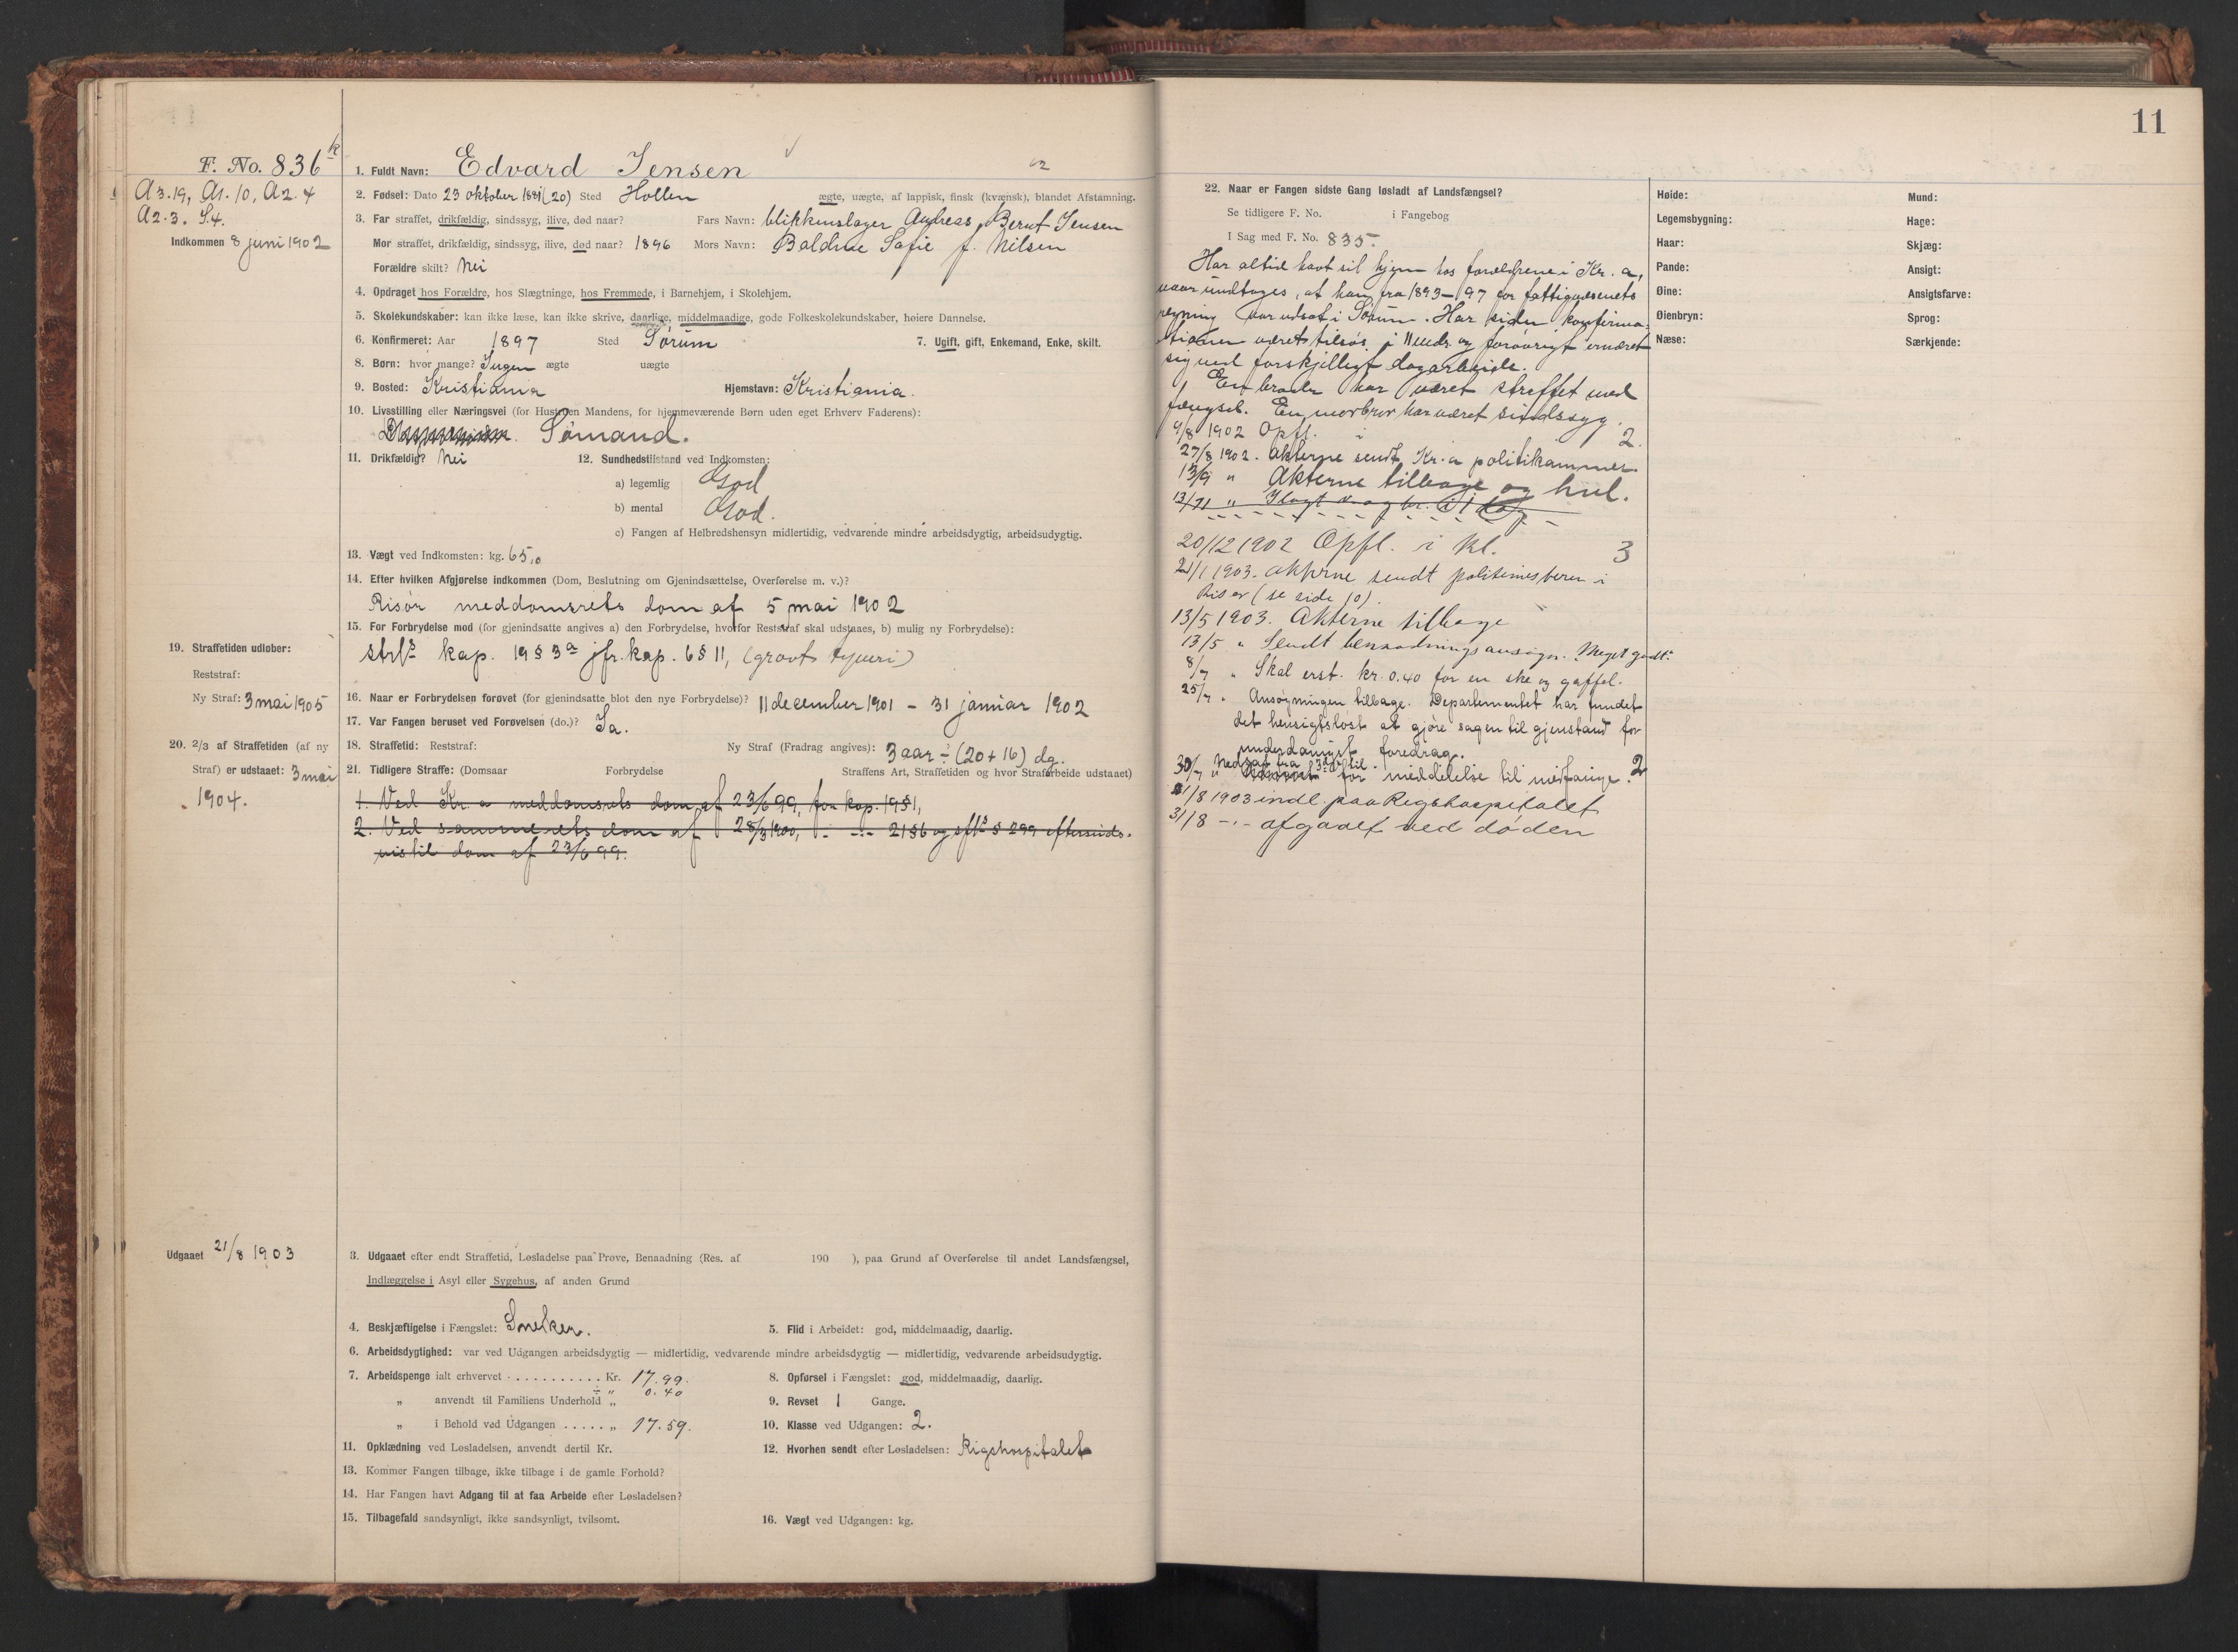 11
F. No. 836
A 3.19, A1. 10, A2. 4
A2.3. S.4.
Indkommen 8 juni 1902
1. Fuldt Navn: Edvard Jensen
2. Fødsel: Dato 23 oktober 1881 (20) Sted Hollen ægte, uægte, af lappisk, finsk (kvænsk), blandet Afstamning.
3. Far straffet, drikfældig, sindssyg, ilive, død naar? Fars Navn: blikkenslager Andreas Bernt Jensen
Mor straffet, drikfældig, sindssyg, ilive, død naar? 1896 Mors Navn: Baldine Sofie f. Nilsen
Forældre skilt? Nei
4. Opdraget hos Forældre, hos Slægtninge, hos Fremmede, i Barnehjem, i Skolehjem.
5. Skolekundskaber: kan ikke læse, kan ikke skrive, daarlige, middelmaadige, gode Folkeskolekundskaber, høiere Dannelse.
6. Konfirmeret: Aar 1897 Sted Sørum 7. Ugift, gift, Enkemand, Enke, skilt.
8. Børn: hvor mange? Ingen ægte uægte
9. Bosted: Kristiania Hjemstavn: Kristiania.
10. Livsstilling eller Næringsvei (for Hustruen Mandens, for hjemmeværende Børn uden eget Erhverv Faderens):
Sømand.
11. Drikfældig? Nei 12. Sundhedstilstand ved Indkomsten:
a) legemlig God
b) mental God.
c) Fangen af Helbredshensyn midlertidig, vedvarende mindre arbeidsdygtig, arbeidsudygtig.
13. Vægt ved Indkomsten: kg. 65,0
14. Efter hvilken Afgjørelse indkommen (Dom, Beslutning om Gjenindsættelse, Overførelse m. v.)?
Risør meddomsrets dom af 5 mai 1902
15. For Forbrydelse mod (for gjenindsatte angives a) den Forbrydelse, hvorfor Reststraf skal udstaaes, b) mulig ny Forbrydelse):
strfs kap. 19 § 3a jfr. kap. 6 § 11, (grovt tyveri)
19. Straffetiden udløber:
Reststraf:
Ny Straf: 3 mai 1905
16. Naar er Forbrydelsen forøvet (for gjenindsatte blot den nye Forbrydelse)? 11 december 1901 – 31 januar 1902
17. Var Fangen beruset ved Forøvelsen (do.)? Ja.
20. 2/3 af Straffetiden (af ny
Straf) er udstaaet: 3 mai
1904.
18. Straffetid: Reststraf: Ny Straf (Fradrag angives): 3 aar ÷ (20 + 16) dg.
21. Tidligere Straffe: (Domsaar Forbrydelse Straffens Art, Straffetiden og hvor Strafarbeide udstaaet)
1. Ved Kr. a meddomsrets dom af 23/6 99, for kap. 19 § 1,
2. Ved samme rets dom af 28/3 1900, — — 21 § 6 og stfl § 299 eftersinds-
vis til dom af 23/6 99.
Udgaaet 21/8 1903
3. Udgaaet efter endt Straffetid, Løsladelse paa Prøve, Benaadning (Res. af 190 ), paa Grund af Overførelse til andet Landsfængsel,
Indlæggelse i Asyl eller Sygehus, af anden Grund
4. Beskjæftigelse i Fængslet: Snekker. 5. Flid i Arbeidet: god, middelmaadig, daarlig.
6. Arbeidsdygtighed: var ved Udgangen arbeidsdygtig — midlertidig, vedvarende mindre arbeidsdygtig — midlertidig, vedvarende arbeidsudygtig.
7. Arbeidspenge ialt erhvervet . . . . . . . . . . . Kr. 17.99. 8. Opførsel i Fængslet: god, middelmaadig, daarlig.
„ anvendt til Familiens Underhold „ ÷ 0.40 9. Revset 1 Gange.
„ i Behold ved Udgangen . . . . . „ 17.59. 10. Klasse ved Udgangen: 2.
11. Opklædning ved Løsladelsen, anvendt dertil Kr. 12. Hvorhen sendt efter Løsladelsen: Rigshospitalet
13. Kommer Fangen tilbage, ikke tilbage i de gamle Forhold?
14. Har Fangen havt Adgang til at faa Arbeide efter Løsladelsen?
15. Tilbagefald sandsynligt, ikke sandsynligt, tvilsomt. 16. Vægt ved Udgangen: kg.
22. Naar er Fangen sidste Gang løsladt af Landsfængsel?
Se tidligere F. No. i Fangebog
I Sag med F. No. 835.
Har altid havt sit hjem hos forældrene i Kr. a,
naar undtages, at han fra 1893–97 for fattigvæsenets
regning var udsat i Sørum. Har siden konfirma-
tionen været tilsøs i 11 mdr. og forøvrigt ernæret
sig ved forskjelligt dagarbeide.
En broder har været straffet med
fængsel. En morbror har været sindssyg.
9/8 1902 Opfl. i 2.
27/8 1902. Akterne sendt Kr. a politikammer.
13/9 „ Akterne tilbage og hul.
13/11 „ Ilagt
20/12 1902 Opfl. i kl. 3
21/1 1903. akterne sendt politimesteren i
Risør (se side 10).
13/5 1903. Akterne tilbage
13/5 „ Sendt benaadningsansøgn. "Meget godt."
8/7 „ Skal erst. kr. 0.40 for en ske og gaffel.
25/7 „ Ansøgningen tilbage. Departementet har fundet
det hensigtsløst at gjøre sagen til gjenstand for
underdanigst foredrag.
30/7 „ Nedsat fra 3die til 2
for meddelelse til medfange.
21/8 1903 indl. paa Rigshospitalet
31/8 –„– afgaaet ved døden
Høide:
Legemsbygning:
Haar:
Pande:
Øine:
Øienbryn:
Næse:
Mund:
Hage:
Skjæg:
Ansigt:
Ansigtsfarve:
Sprog:
Særkjende: